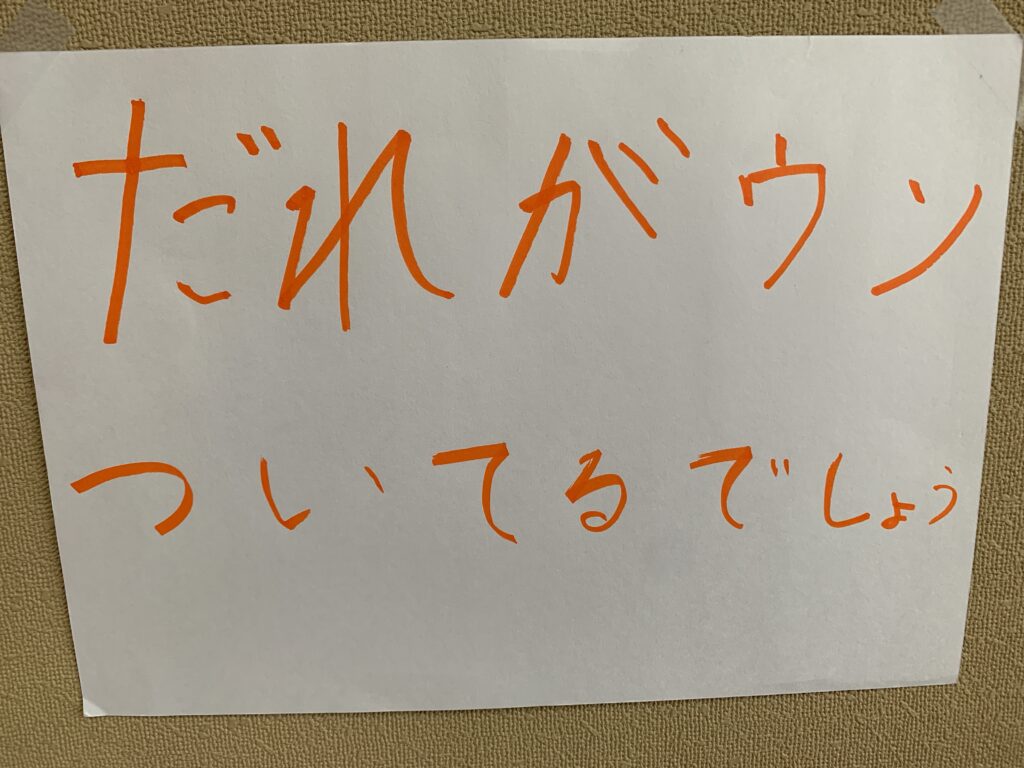 だれがウン
ついてるでしょう